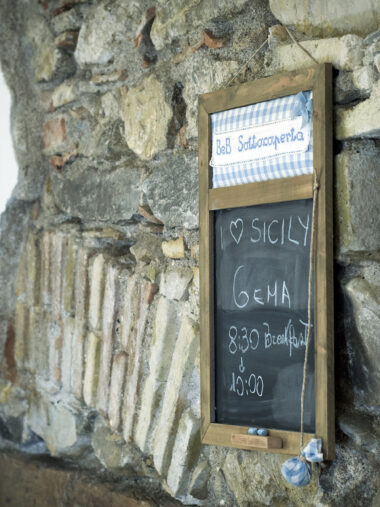 B&B Sottocoperta
I ♡ SICILY
GEMA
8:30 Breakfast
↓
10:00